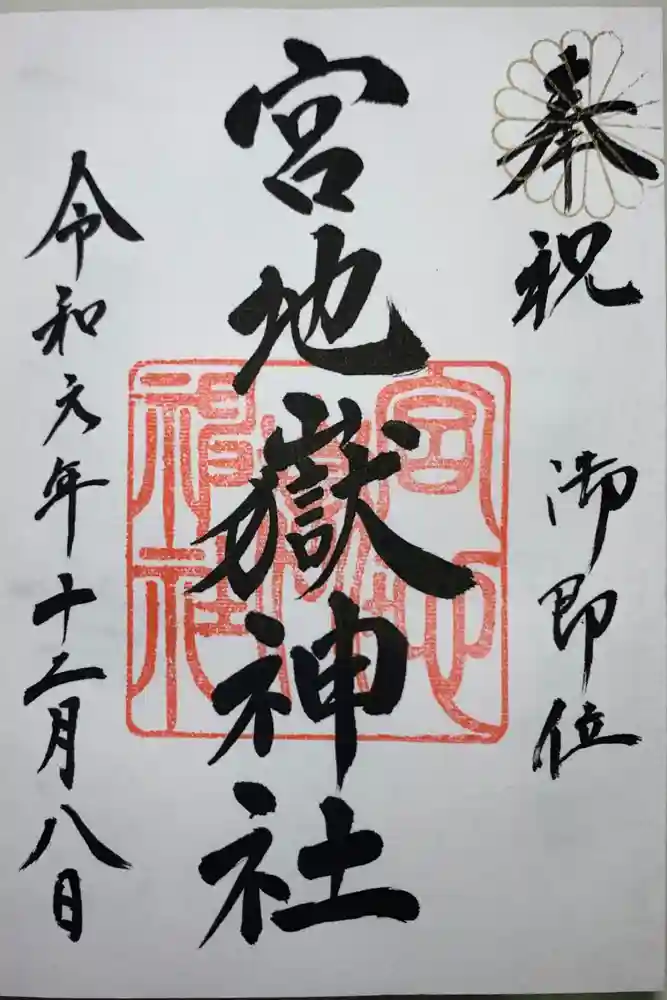 奉祝 御即位
宮地嶽神社
宮地嶽神社
令和元年十二月八日